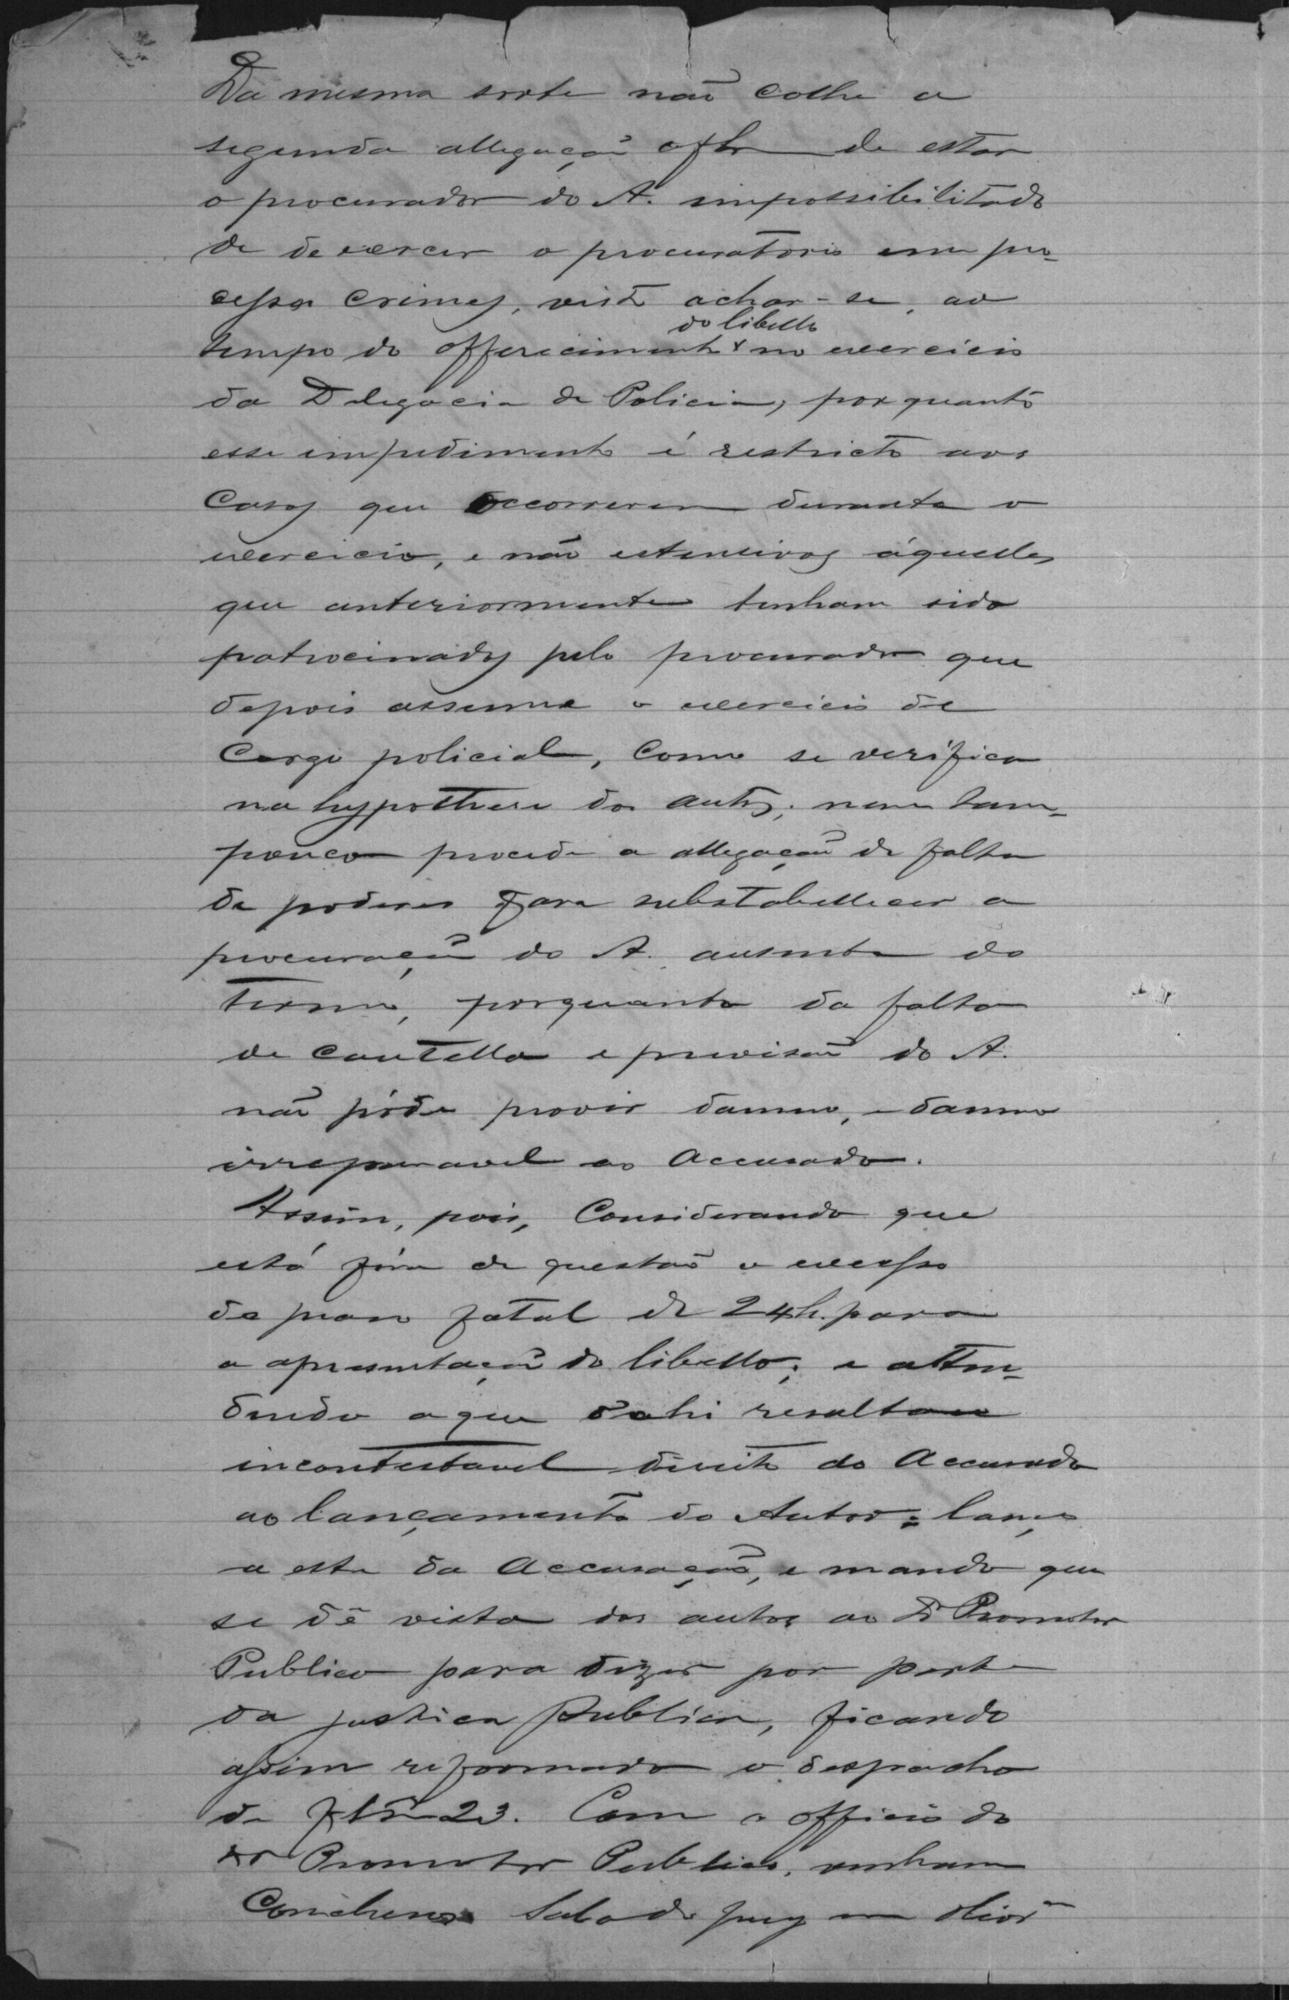 Da mesma sorte não colhe a
segunda allegação a fls de estar
o procurador do A. impossibilitado
de exercer o procuratorio em pro-
cessos crimes, visto achar-se, ao
do libello
tempo do offerecimento no exercicio
da Delegacia de Policia, porquanto
esse impedimento é restricto aos
casos que occorrerem durante o
exercicio, e não extensivos áquelles
que anteriormente tenham sido
patrocinados pelo procurador que
depois assuma o exercicio de
cargo policial, como se verifica
na hypothese dos autos; nem tam-
pouco procede a allegação de falta
de poderes para substabellecer a
procuração do A. ausente do
Termo, porquanto da falta
de cautella e previsão do A.
não póde provir damno, e damno
irreparavel ao Accusado.
Assim, pois, Considerando que
está fóra de questão o excesso
de praso fatal de 24h. para
a apresentação do libello; e atten-
dendo a que dahi resulta
incontestavel direito do Accusado
ao lançamento do Autor: lanço
a este da Accusação, e mando que
se dê vista dos autos ao Dr Promotor
Publico para dizer por parte
da justiça publica, ficando
assim reformado o despacho
de fls 23. Com o officio do
Dr Promotor Publico, venham
Conclusos Sala do Jury em